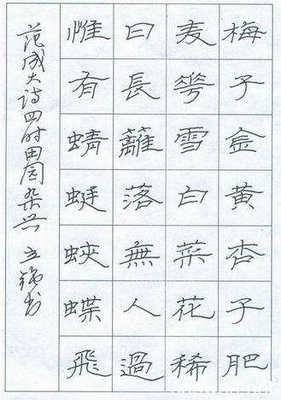 梅子金黄杏子肥
麦華雪白菜花稀
日長籬落無人過
惟有蜻蜓蛺蝶飛
范成大诗四时田园杂兴 立书